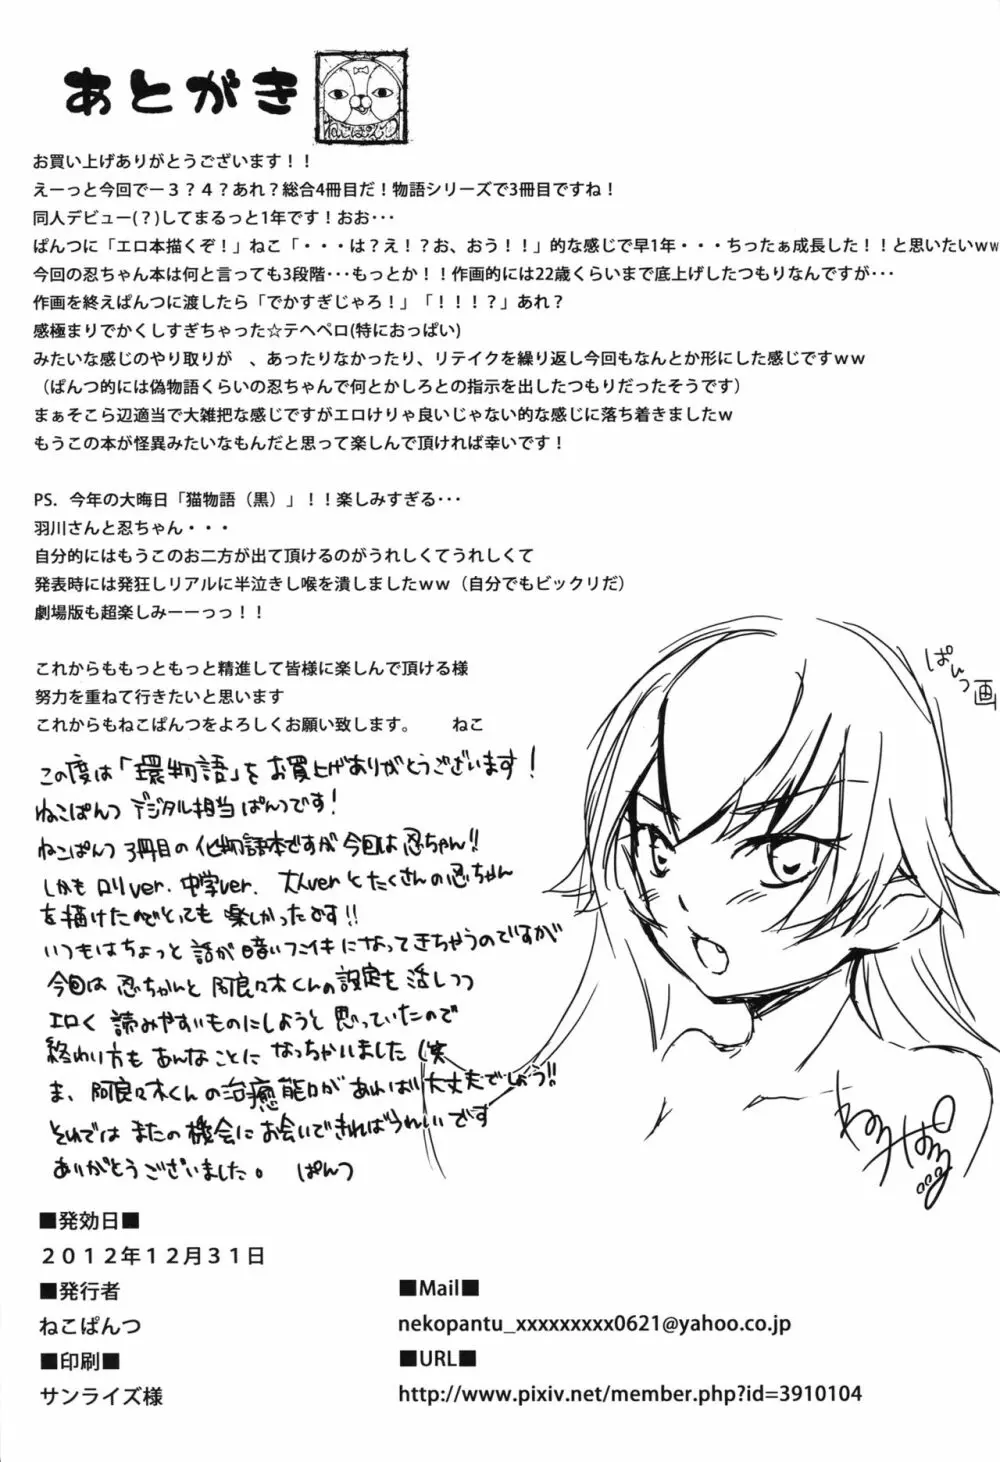 あとがき
ねこぱんつ
お買い上げありがとうございます！！
えーっと今回でー３？４？あれ？総合4冊目だ！物語シリーズで3冊目ですね！
同人デビュー(？)してまるっと1年です！おお･･･
ぱんつに「エロ本描くぞ！」ねこ「・・・は？え！？お、おう！！」的な感じで早1年・・・ちったぁ成長した！！と思いたいww
今回の忍ちゃん本は何と言っても3段階･･･もっとか！！作画的には22歳くらいまで底上げしたつもりなんですが･･･
作画を終えぱんつに渡したら「でかすぎじゃろ！」「！！！？」あれ？
感極まりでかくしすぎちゃった☆テヘペロ(特におっぱい)
みたいな感じのやり取りが　、あったりなかったり、リテイクを繰り返し今回もなんとか形にした感じですｗｗ
（ぱんつ的には偽物語くらいの忍ちゃんで何とかしろとの指示を出したつもりだったそうです）
まぁそこら辺適当で大雑把な感じですがエロけりゃ良いじゃない的な感じに落ち着きましたｗ
もうこの本が怪異みたいなもんだと思って楽しんで頂ければ幸いです！
PS．今年の大晦日「猫物語（黒）」！！楽しみすぎる･･･
羽川さんと忍ちゃん・・・
自分的にはもうこのお二方が出て頂けるのがうれしくてうれしくて
発表時には発狂しリアルに半泣きし喉を潰しましたｗｗ（自分でもビックリだ）
劇場版も超楽しみーーっっ！！
これからももっともっと精進して皆様に楽しんで頂ける様
努力を重ねて行きたいと思います
これからもねこぱんつをよろしくお願い致します。　　ねこ
ぱんつ画
この度は「環物語」をお買上げありがとうございます！
ねこぱんつ デジタル担当 ぱんつです！
ねこぱんつ 3冊目の化物語本ですが今回は忍ちゃん!!
しかも ロリver. 中学ver. 大人verとたくさんの忍ちゃん
を描けたのでとても 楽しかったです!!
いつもはちょっと 話が暗いフンイキになってきちゃうのですが
今回は 忍ちゃんと 阿良々木くんの設定を 活しつつ
エロく 読みやすいものにしようと思っていたので
終わり方も あんなことに なっちゃいました（笑
ま、阿良々木くんの治癒能力があれば大丈夫でしょう!!
それでは またの機会にお会いできればうれしいです
ありがとうございました。　ぱんつ
ねこぱんつ
■発効日■
２０１２年１２月３１日
■発行者
ねこぱんつ
■印刷■
サンライズ様
■Mail■
nekopantu_xxxxxxxxx0621@yahoo.co.jp
■URL■
http://www.pixiv.net/member.php?id=3910104